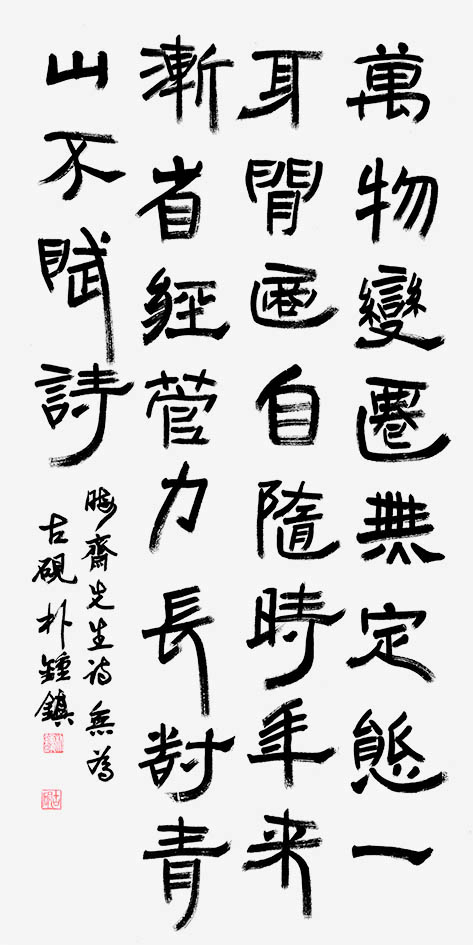 萬物變遷無定態一
身閒適自隨時年来
漸省經营力長對青
山不賦詩
晦齋先生詩無為
古硯朴鍾鎮